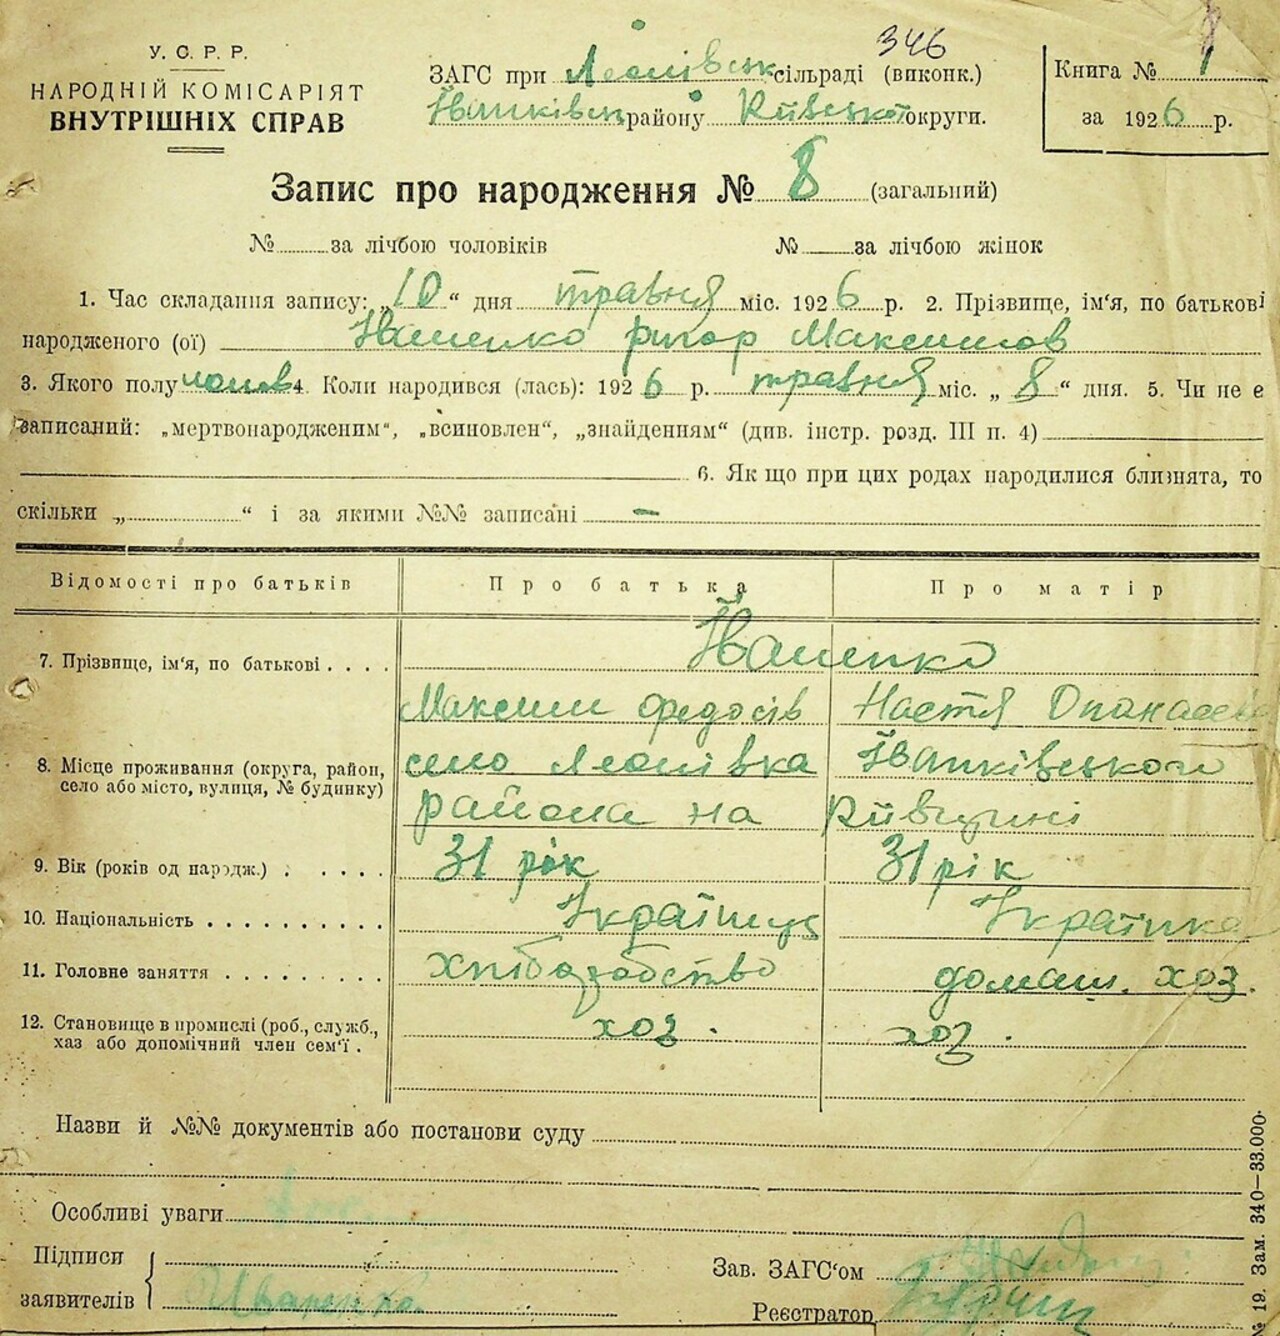 346
У. С. Р. Р.
НАРОДНІЙ КОМІСАРІЯТ
ВНУТРІШНІХ СПРАВ
ЗАГС при Леонівськ сільраді (виконк.)
Іванківськ району Київської округи.
Книга № 1
за 1926 р.
Запис про народження № 8 (загальний)
№ за лічбою чоловіків № за лічбою жінок
1. Час складання запису: „10“ дня травня міс. 1926 р. 2. Прізвище, ім'я, по батькові
народженого (ої) Іваненко Григор Максимов
3. Якого полу чолов 4. Коли народився (лась): 1926 р. травня міс. „8“ дня. 5. Чи не є
записаний: „мертвонародженим“, „всиновлен“, „знайденням“ (див. інстр. розд. III п. 4)
6. Як що при цих родах народилися близнята, то
скільки „ “ і за якими №№ записані —
Відомості про батьків Про батька Про матір
7. Прізвище, ім'я, по батькові . . . . Іваненко
Максим Федосів Настя Опанасів
8. Місце проживання (округа, район, село або місто, вулиця, № будинку) село Леонівка Іванківського
района на Київщині
9. Вік (років од народж.) . . . . . 31 рік 31 рік
10. Національність . . . . . . . . . . Українець Українка
11. Головне заняття . . . . . . . . . хліборобство домаш. хоз.
12. Становище в промислі (роб., служб., хоз. хоз.
хаз або допомічний член сем'ї .
Назви й №№ документів або постанови суду
Особливі уваги
Підписи
заявителів Иваненко
Зав. ЗАГС'ом
Реєстратор
№ 19. Зам. 340—33.000.